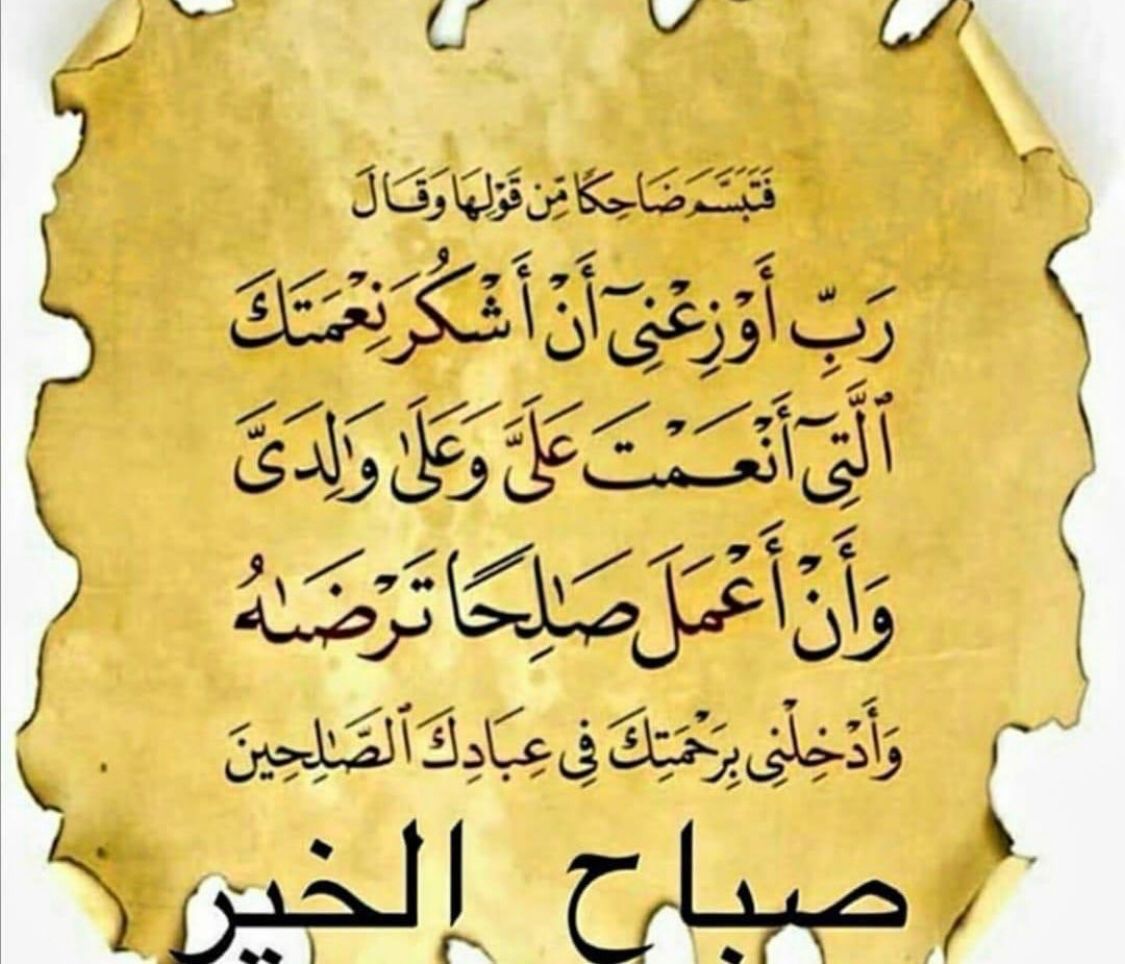 فَتَبَسَّمَ ضَاحِكًا مِّن قَوْلِهَا وَقَالَ
رَبِّ أَوْزِعْنِىٓ أَنْ أَشْكُرَ نِعْمَتَكَ
ٱلَّتِىٓ أَنْعَمْتَ عَلَىَّ وَعَلَىٰ وَٰلِدَىَّ
وَأَنْ أَعْمَلَ صَٰلِحًا تَرْضَىٰهُ
وَأَدْخِلْنِى بِرَحْمَتِكَ فِى عِبَادِكَ ٱلصَّٰلِحِينَ
صباح الخير